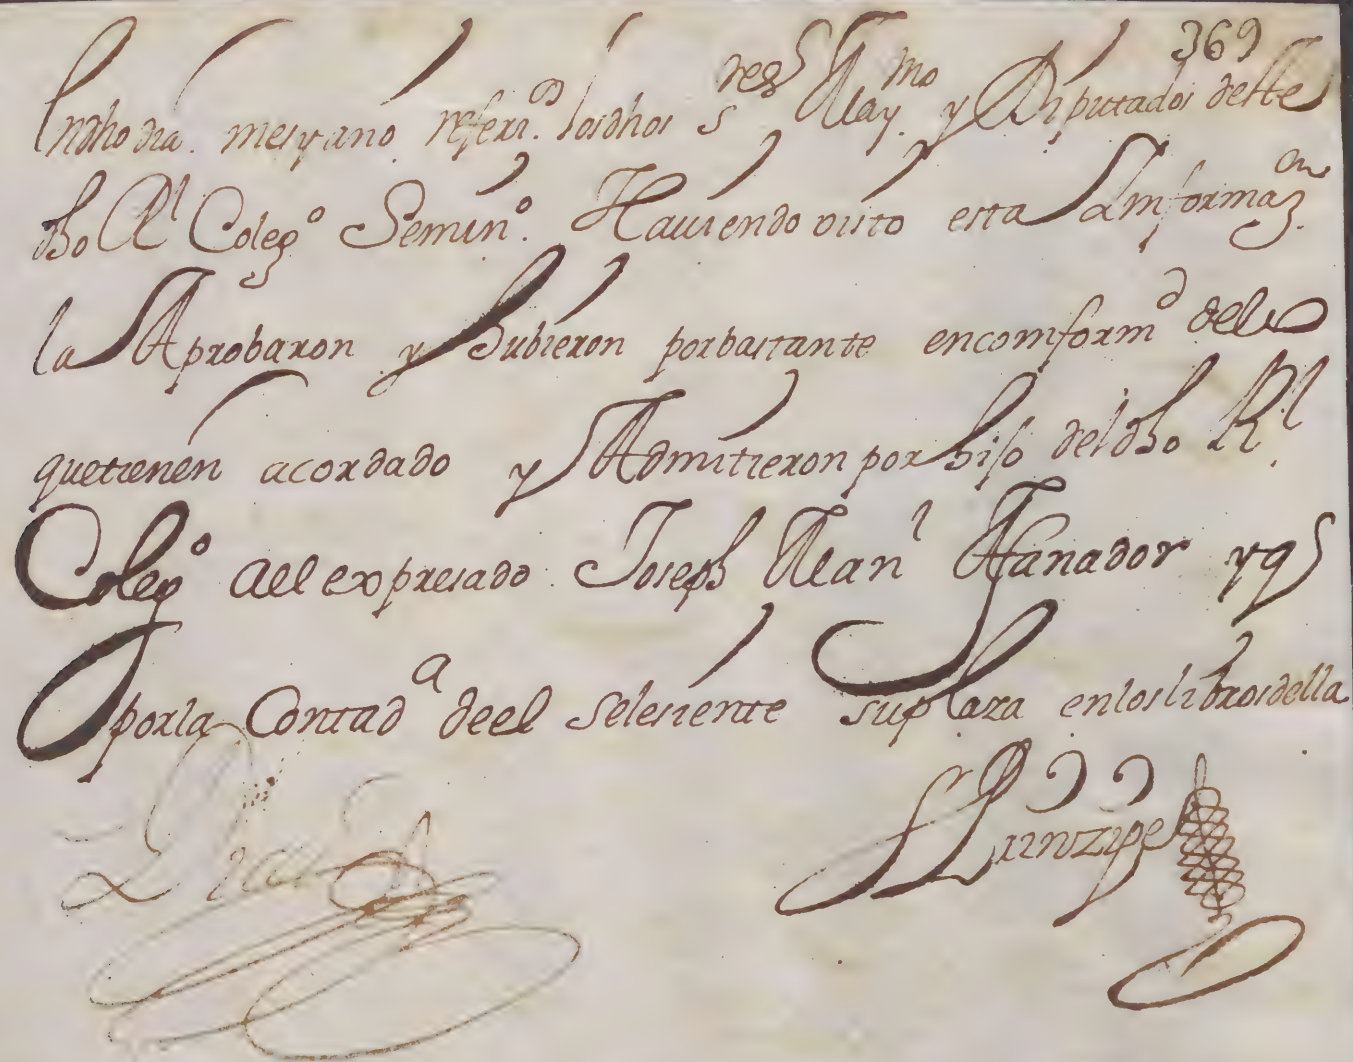 369
En dho dia mes y año referi.do los dhos S.res May.mo y Diputados deste
dho R.l Coleg.o Semin.o Haviendo visto esta Imformaz.on
la Aprobaron y hubieron por bastante en comform.d de lo
que tienen acordado y Admitieron por hijo del dho R.l
Coleg.o a el expresado Joseph Man.l Afanador y q.e
por la Contad.a de el se le siente su plaza en los libros della
Prinzipe